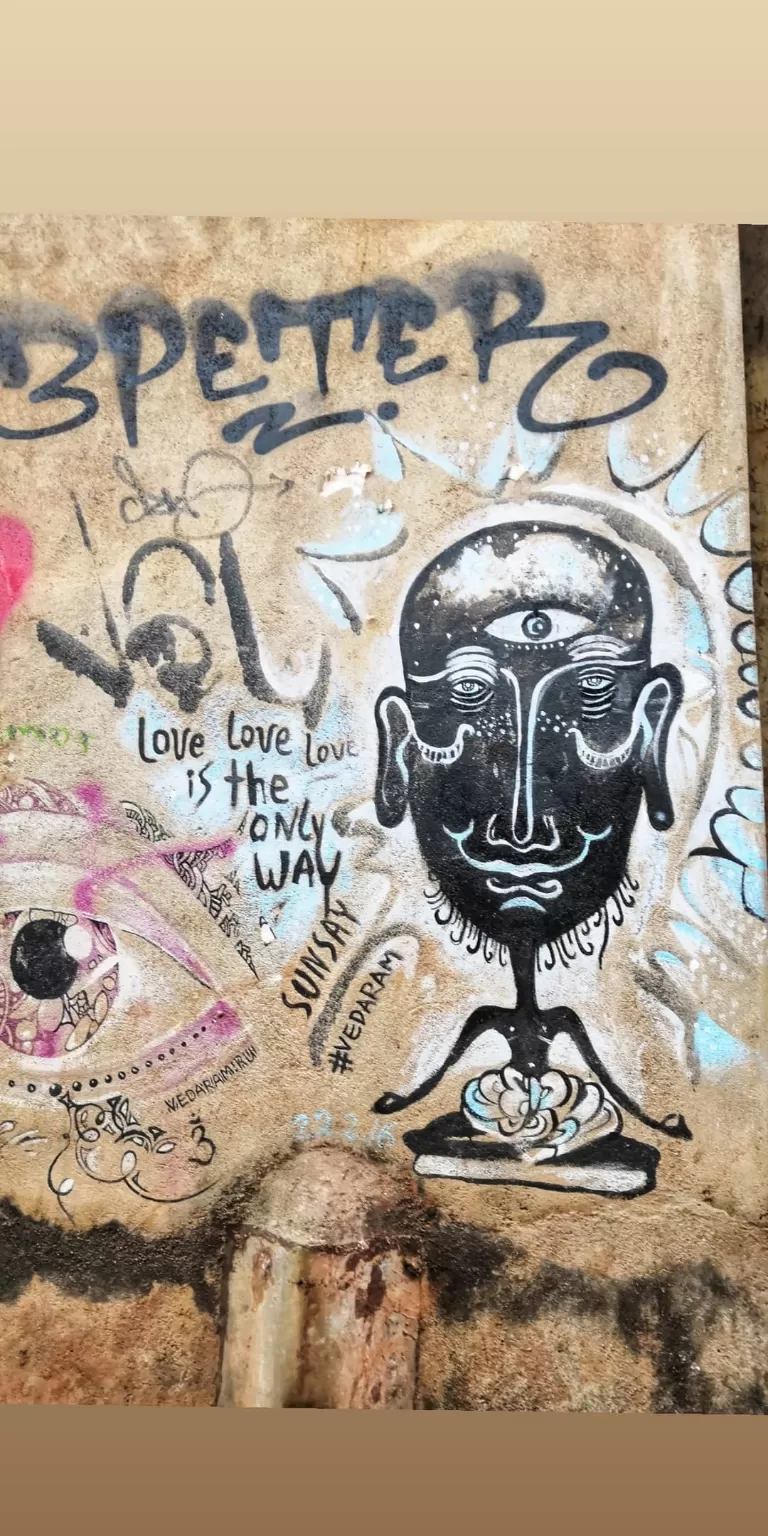 3PETER
LOVE LOVE LOVE
is the
ONLY
WAY
SUNSAY
#VEDARAM
VEDARAM.RU
ॐ
22.2.16